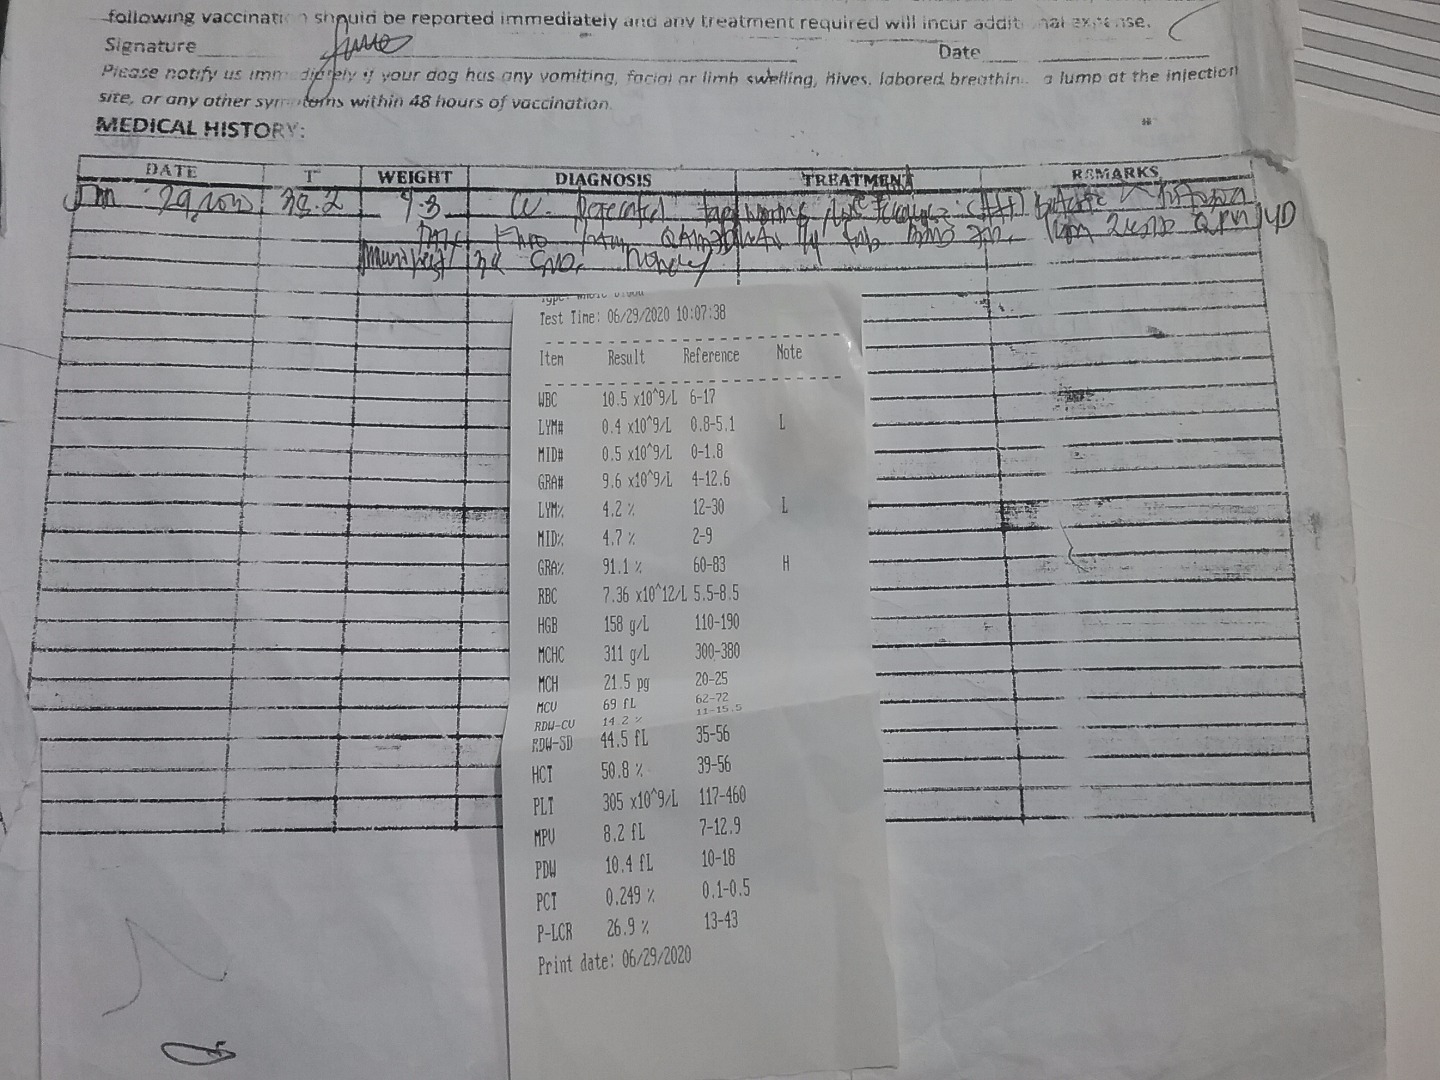 following vaccination should be reported immediately and any treatment required will incur additional expense.
Signature Date
Please notify us immediately if your dog has any vomiting, facial or limb swelling, hives, labored breathing, a lump at the injection
site, or any other symptoms within 48 hours of vaccination.
MEDICAL HISTORY:
DATE T° WEIGHT DIAGNOSIS TREATMENT REMARKS
29, 2020 39.2 tape worms
Type: Whole Blood
Test Time: 06/29/2020 10:07:38
Item Result Reference Note
WBC 10.5 x10^9/L 6-17
LYM# 0.4 x10^9/L 0.8-5.1 L
MID# 0.5 x10^9/L 0-1.8
GRA# 9.6 x10^9/L 4-12.6
LYM% 4.2 % 12-30 L
MID% 4.7 % 2-9
GRA% 91.1 % 60-83 H
RBC 7.36 x10^12/L 5.5-8.5
HGB 158 g/L 110-190
MCHC 311 g/L 300-380
MCH 21.5 pg 20-25
MCV 69 fL 62-72
RDW-CV 14.2 % 11-15.5
RDW-SD 44.5 fL 35-56
HCT 50.8 % 39-56
PLT 305 x10^9/L 117-460
MPV 8.2 fL 7-12.9
PDW 10.4 fL 10-18
PCT 0.249 % 0.1-0.5
P-LCR 26.9 % 13-43
Print date: 06/29/2020